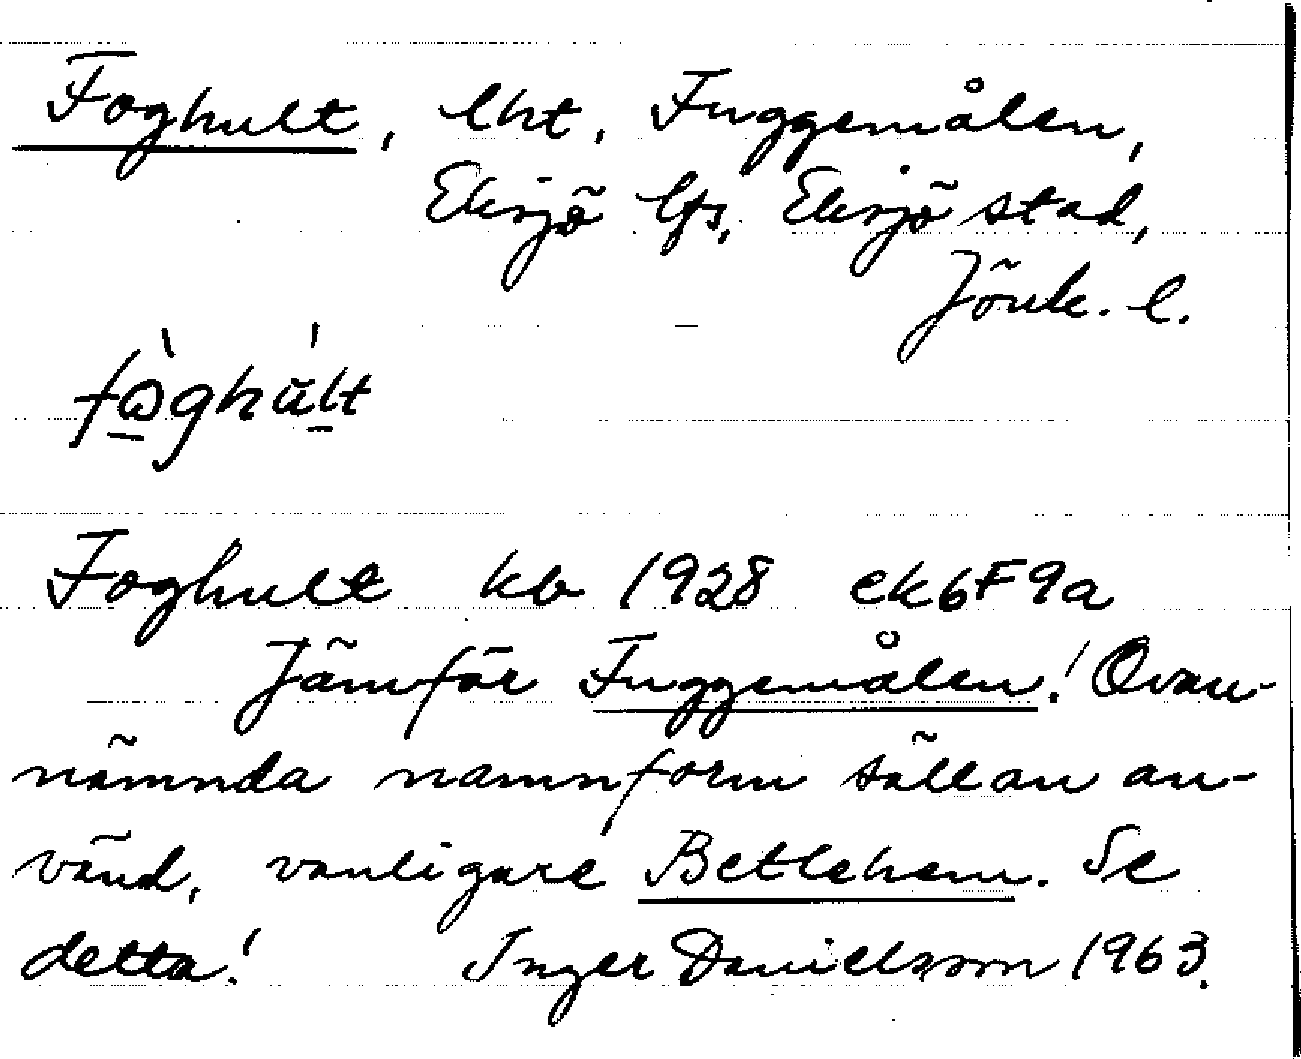 Foghult, lht. Fuggemålen,
Eksjö lfs, Eksjö stad,
Jönk. l.
Foghult kb 1928 ek6F9a
Jämför Fuggemålen! Ovan-
nämnda namnform sällan an-
vänd, vanligare Betlehem. Se
detta! Inger Danielsson 1963.